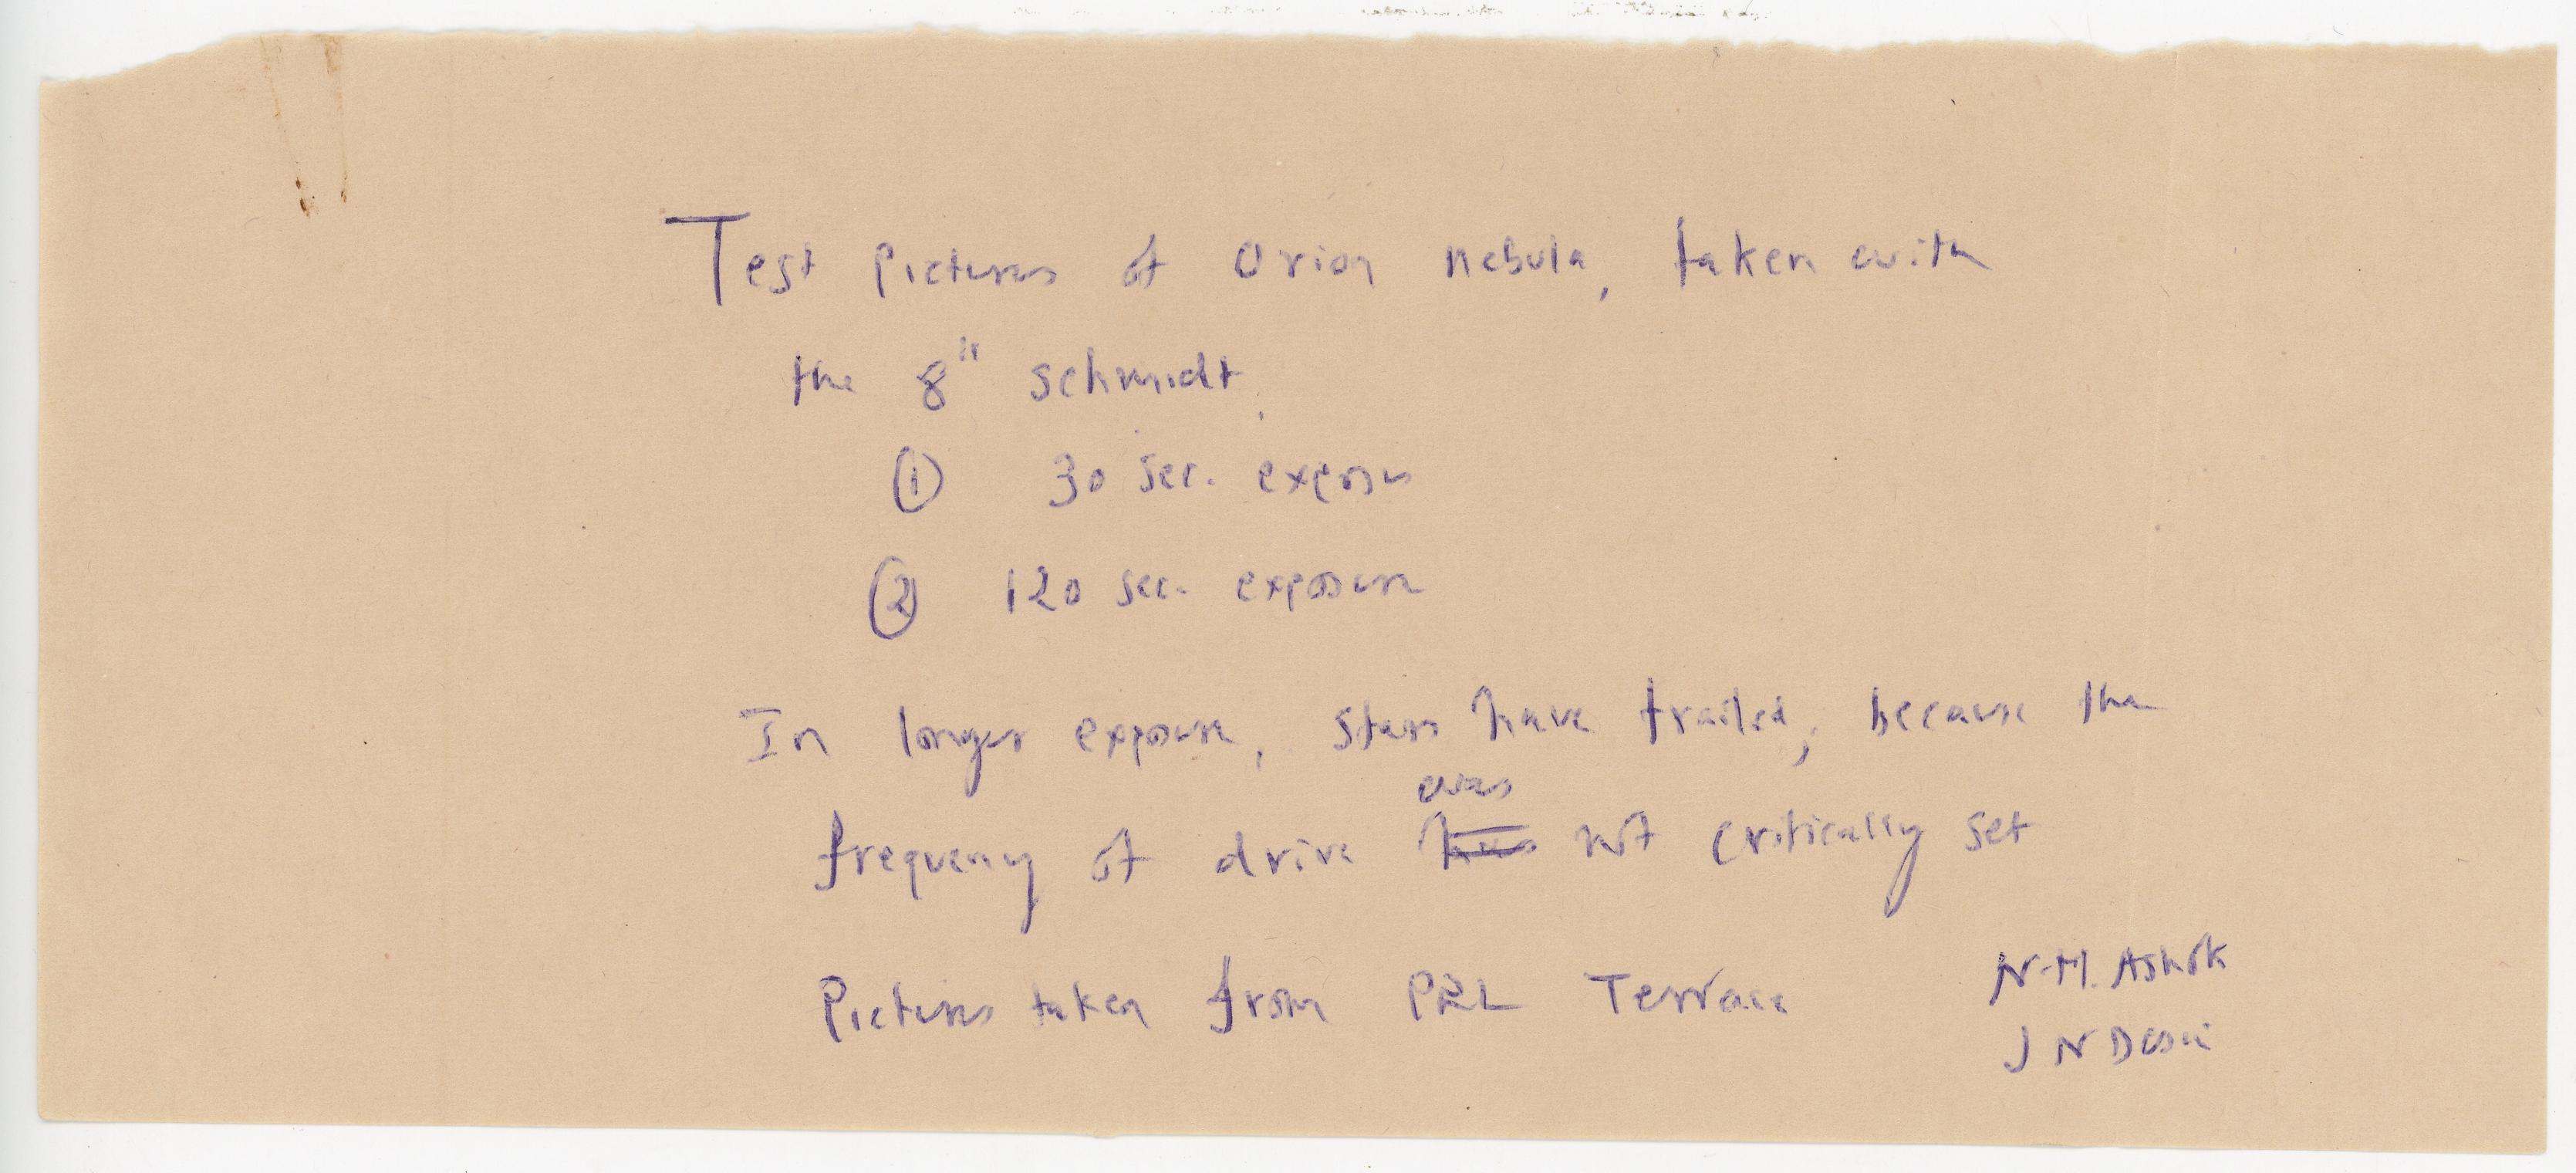 Test Pictures of Orion nebula, taken with
the 8" schmidt.
① 30 sec. exposure
② 120 sec. exposure
In longer exposure, stars have trailed, because the
was
frequency of drive has not critically set
Pictures taken from PRL Terrace
N.M. Ashok
J N Desai